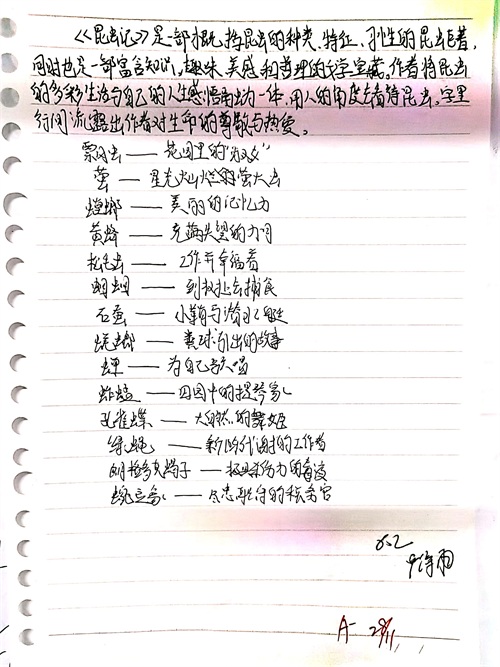 《昆虫记》是一部概括昆虫的种类、特征、习性的昆虫巨著,
同时也是一部富含知识、趣味、美感和哲理的文学宝藏。作者将昆虫
的多彩生活与自己的人生感悟融为一体,用人的角度去看待昆虫。字里
行间流露出作者对生命的尊敬与热爱。
——花园里的
萤——星光灿烂的萤火虫
螳螂——美丽的记忆力
黄蜂——充满失望的
松毛虫——工作并幸福着
蝈蝈——到捕食
石蚕——小鞘与潜水艇
蜣螂——粪球滚出的故事
蝉——为自己歌唱
蚱蜢——田园中的提琴家
孔雀蝶——大自然的舞姬
绿蝇——新陈代谢的工作者
朗格多克蝎子——极具杀伤力的
——尽忠职守的
6.2
雨
A- 29/11